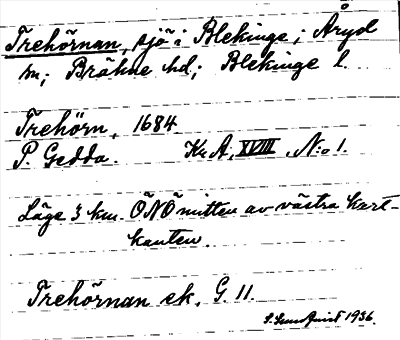 Trehörnan, sjö i Blekinge; Åryd
m; Bräkne hd; Blekinge l.
Trehörn, 1684
P. Gedda. Kr. A; XVIII, N:o 1.
Läge 3 km. ÖNÖ mitten av västra kart-
kanten.
Trehörnan ek. G. 11.
S. Sundquist 1936.